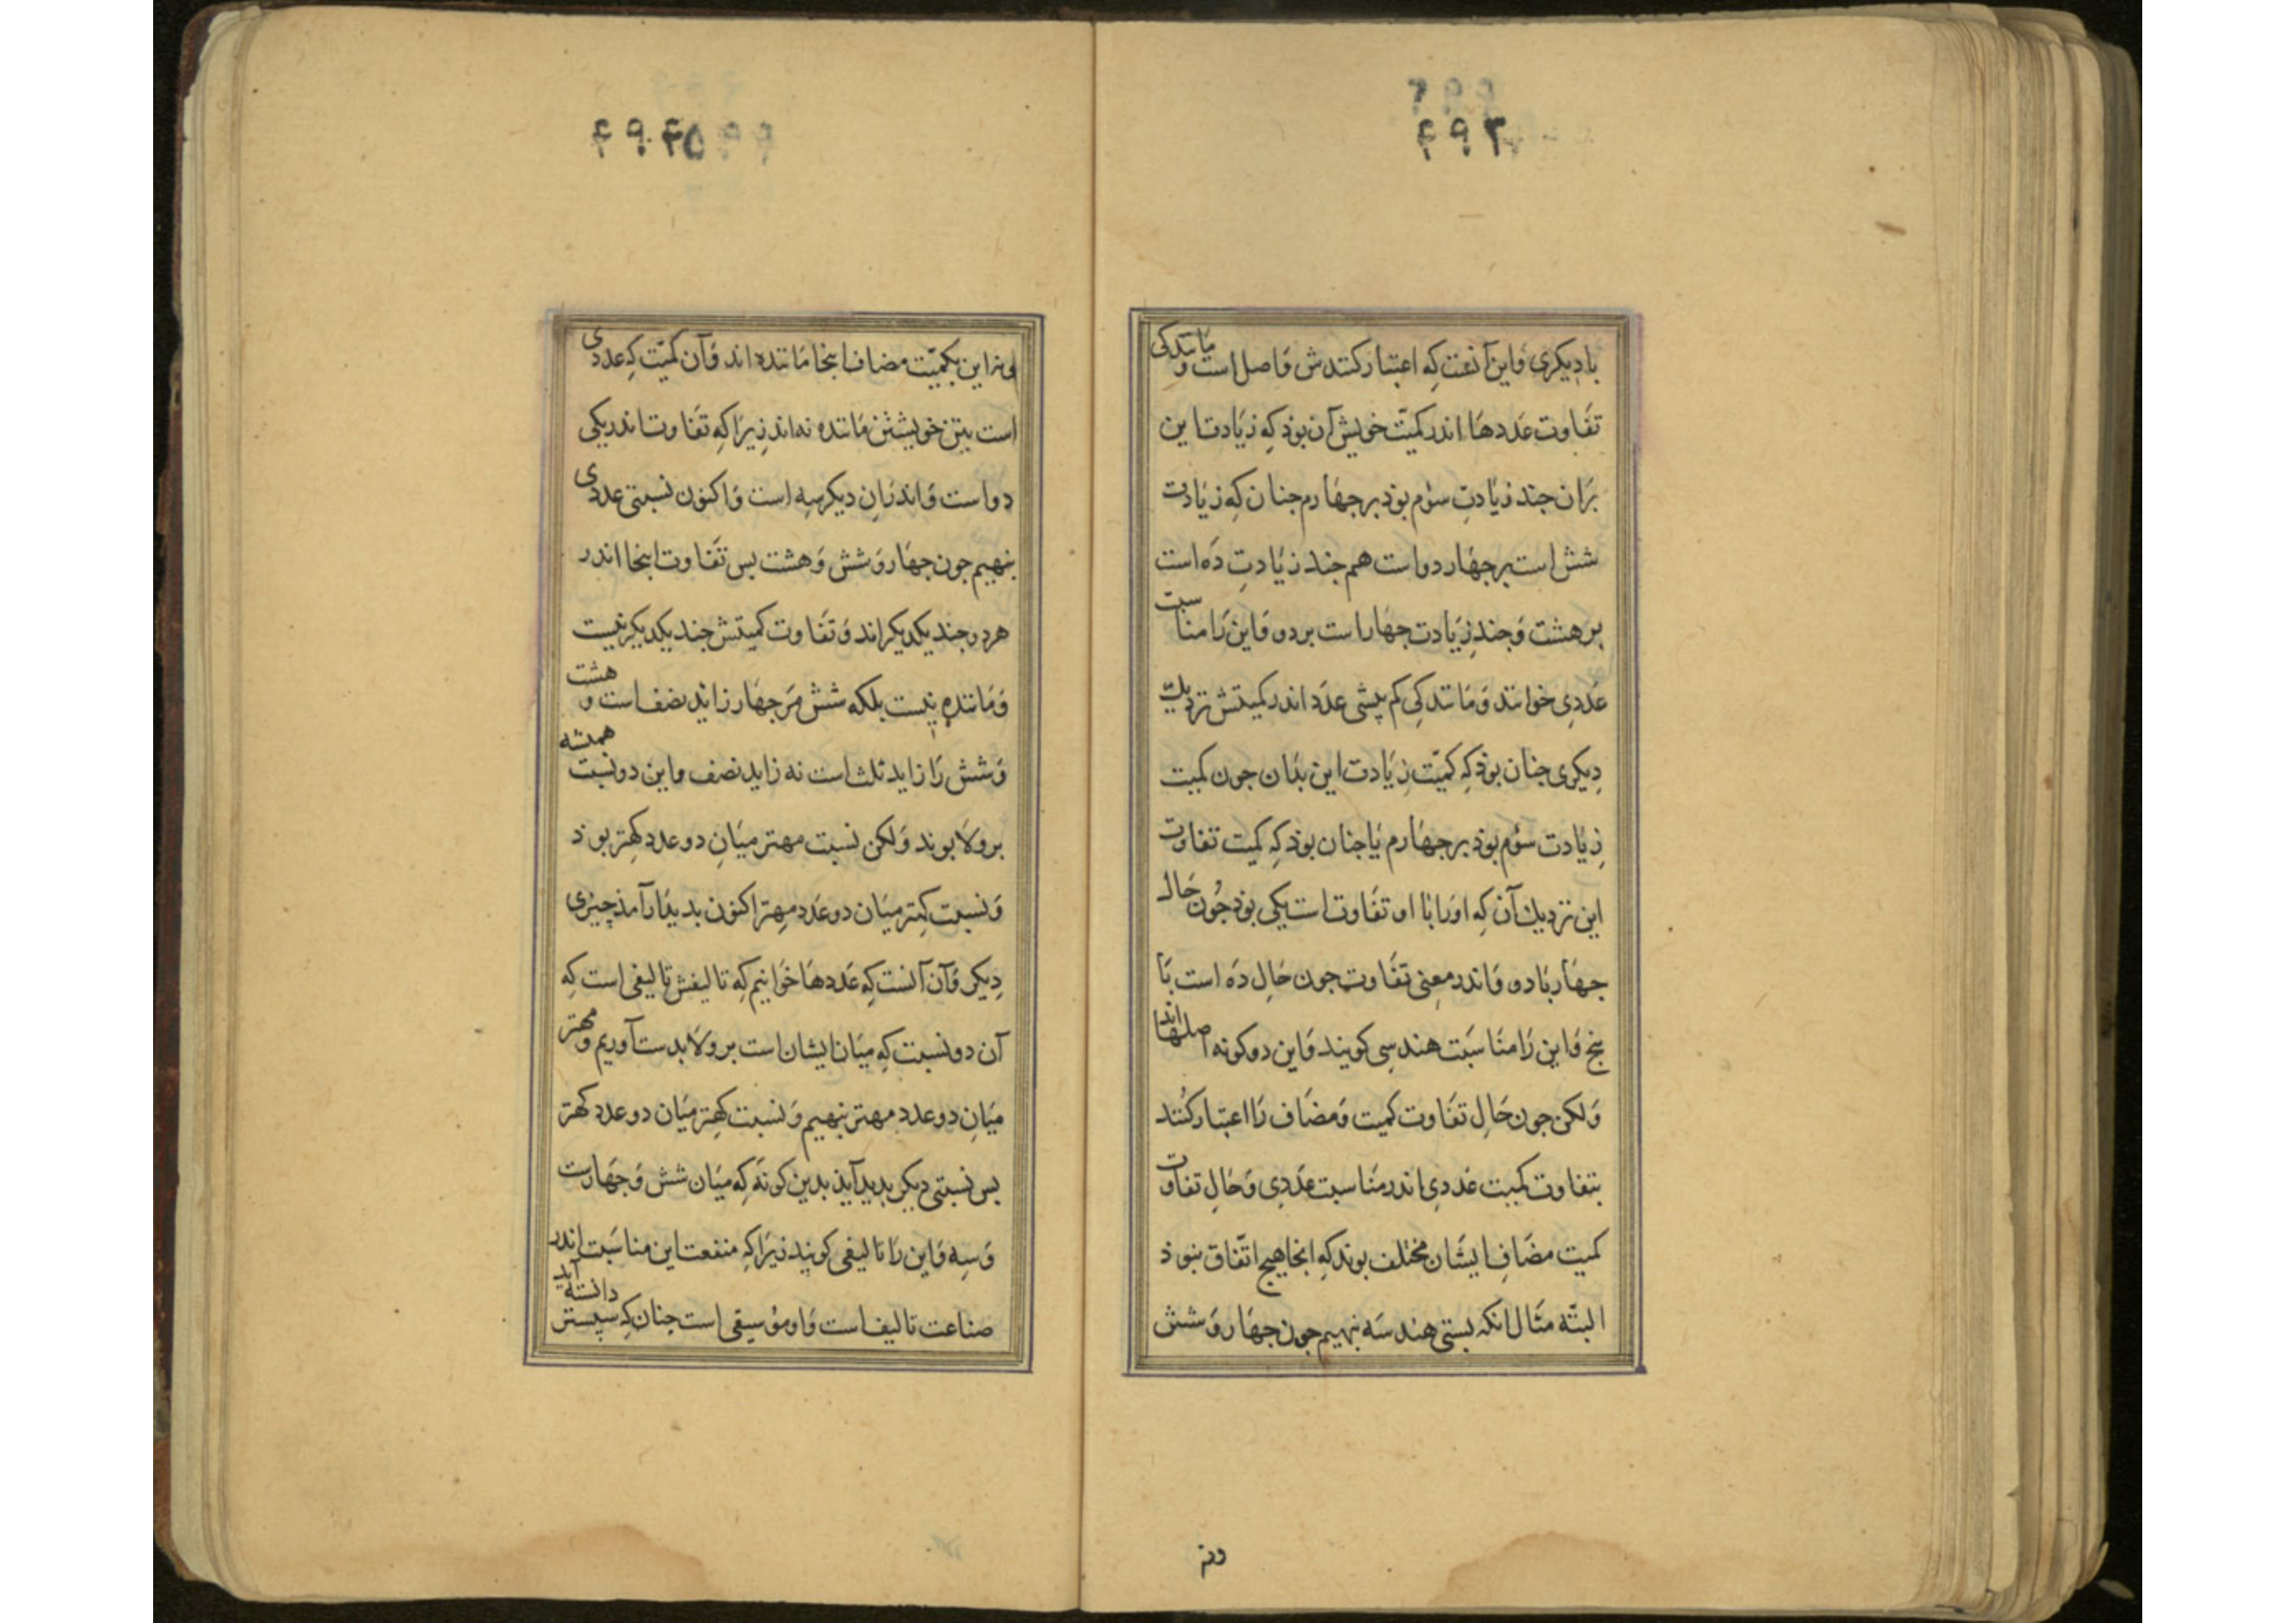 ۴۹۳
با دیکری واین آنست که اعتبار کنندش فاصل است و مانندکی
تفاوت عددها اندر کمیّت خویش آن بوذ که زیادت این
بران جند زیادتِ سوم بوذ بر جهارم جنان که زیادت
شش است بر جهار دو است هم جند زیادتِ ده است
بر هشت و جند زیادت جهار است بر دو و این را مناسبت
عددی خوانند و مانندکی کم بیشی عدد اندر کمیتش نزدیک
دیکری جنان بوذ که کمیّت زیادت این بذان جون کمیت
زیادت سوم بوذ بر جهارم یا جنان بوذ که کمیت تفاوت
این نزدیك آن که اورا با او تفاوت است یکی بوذ جون حال
جهار با دو و اندر معنی تفاوت جون حال ده است با
پنج و این را مناسبت هندسی کویند و این دو کونه اصلها اند
ولکن جون حال تفاوت کمیت و مضاف را اعتبار کنند
بتفاوت کمیت عددی اندر مناسبت عددی و حال تفاوت
کمیت مضاف ایشان مختلف بوند که اینجا هیج اتّفاق نبوذ
البتّه مثال انکه بستی هندسه بنهیم جون جهار و شش
ونه
۴۹۴
این بکمیّت مضاف اینجا مانده اند و آن کمیّت که عددی
است بتن خویشتن مانده نه اند زیرا که تفاوت اندر یکی
دو است و اندران دیکر سه است و اکنون نسبتی عددی
بنهیم جون جهار و شش و هشت بس تفاوت اینجا اندر
هر دو جند یکدیکر اند و تفاوت کمیتش جند یکدیکر نیست
و ماننده نیست بلکه شش مر جهار زاید نصف است و هشت
و شش را زاید ثلث است نه زاید نصف و این دو نسبت همیشه
بر ولا بوند ولکن نسبت مهتر میان دو عدد کهتر بوذ
و نسبت کهتر میان دو عدد مهتر اکنون بدیذار آمذ چیزی
دیکر و آن آنست که عددها خوانیم که تالیفش تالیفی است که
آن دو نسبت که میان ایشان است بر ولا بدست آوریم و مهتر
میان دو عدد مهتر بنهیم و نسبت کهتر میان دو عدد کهتر
بس نسبتی دیکر بدید آیذ بدین کونه که میان شش و جهارت
و سه و این را تالیفی کویند زیرا که منفعت این مناسبت اندر
صناعت تالیف است و او موسیقی است جنان که سپستر دانسته آید